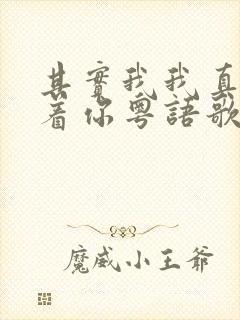 其實我我真
着你粵語歌
魔威小王爺